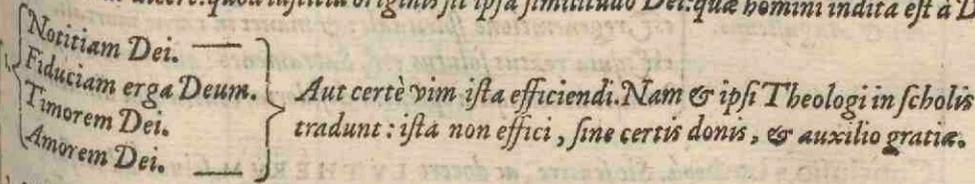 dicere: quod iustitia originis sit ipsa similitudo Dei: quæ homini indita est à D
Notitiam Dei.
Fiduciam erga Deum.
Timorem Dei.
Amorem Dei.
Aut certè vim ista efficiendi. Nam & ipsi Theologi in scholis
tradunt: ista non effici, sine certis donis, & auxilio gratiæ.